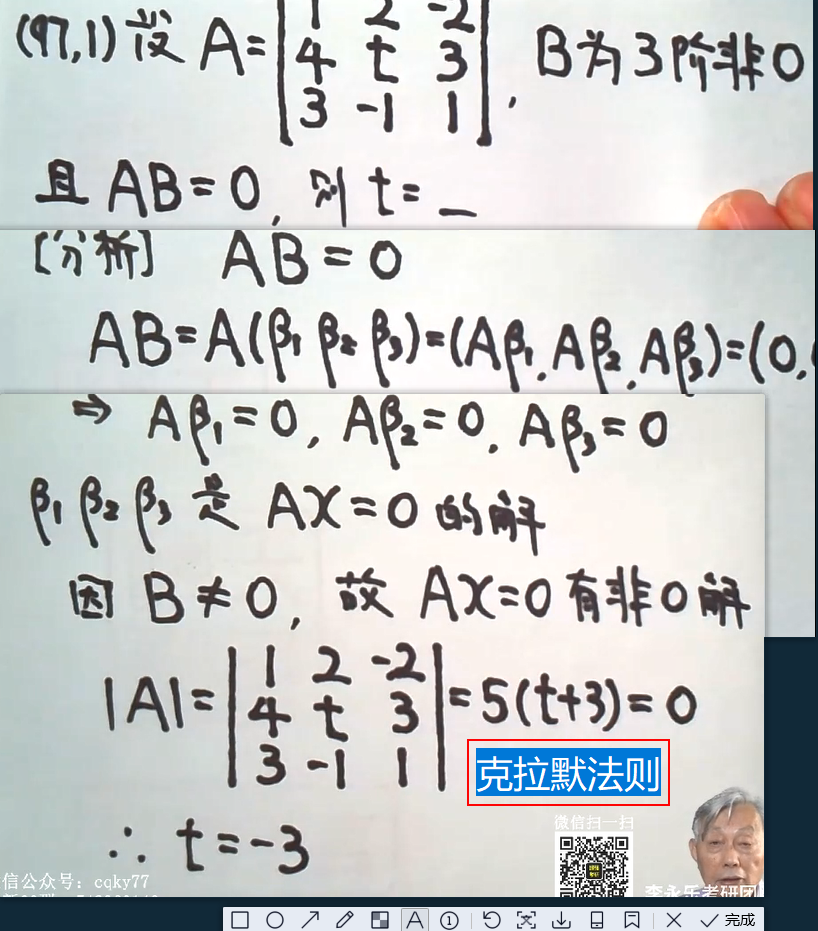 (97,1) 设 A= | 1 2 -2 |
| 4 t 3 |
| 3 -1 1 | , B为3阶非0
且 AB=0, 则 t= _
[分析] AB=0
AB=A(β1 β2 β3)=(Aβ1,Aβ2,Aβ3)=(0,
⇒ Aβ1=0, Aβ2=0, Aβ3=0
β1 β2 β3 是 AX=0 的解
因 B≠0, 故 AX=0有非0解
|A|= | 1 2 -2 |
| 4 t 3 | =5(t+3)=0
| 3 -1 1 |
克拉默法则
∴ t=-3
微信扫一扫
信公众号: cqky77
李永乐考研团
A ① 文 完成